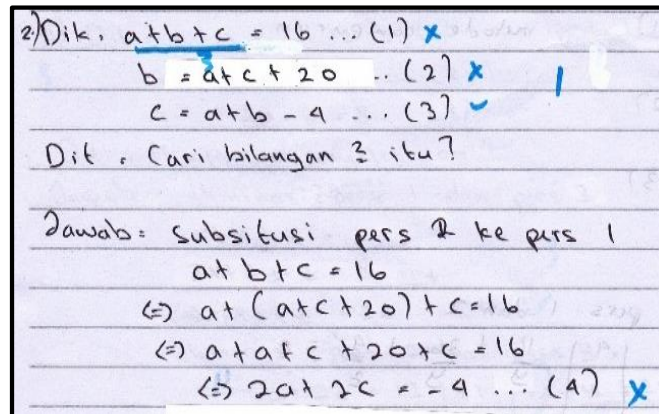 2) Dik : a+b+c = 16 ... (1) x
3
b = a+c+20 .. (2) x
1
c = a+b-4 ... (3) ✓
Dit : Cari bilangan 2 itu?
Jawab = Subsitusi pers 2 ke pers 1
a+b+c = 16
(=) a+(a+c+20)+c=16
(=) a+a+c+20+c = 16
(=) 2a+2c = -4 ... (4) x